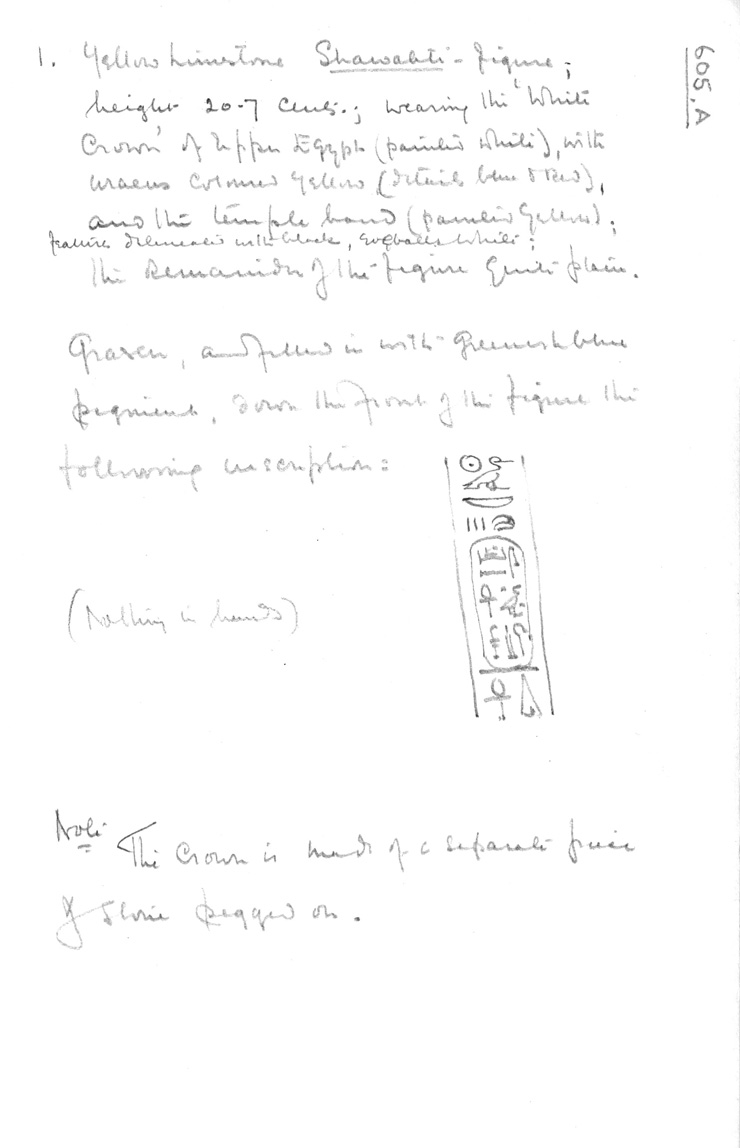 605.A
1. Yellow Limestone Shawabti-figure;
height 20.7 cents.; wearing the 'White
Crown' of Upper Egypt (painted white), with
uraeus coloured yellow (details blue & red),
and the temple band (painted yellow);
features delineated with black, eyeballs white;
the remainder of the figure quite plain.
Graven, and filled in with greenish blue
pigment, down the front of the figure the
following inscription:
(Nothing in hands)
Note The Crown is made of a separate piece
of stone pegged on.